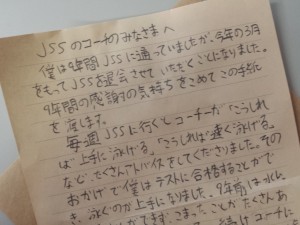 JSSのコーチのみなさまへ
僕は9年間JSSに通っていましたが、今年の3月
をもってJSSを退会させていただくことになりました。
9年間の感謝の気持ちをこめてこの手紙
を渡します。
毎週JSSに行くとコーチが「こうしれ
ば上手に泳げる」「こうしれば速く泳げる」
など、たくさんアドバイスをしてくださりました。その
おかげで僕はテストに合格することがで
き、泳ぐのが上手になりました。9年前は水に
こまったことがたくさんあ
コーチに